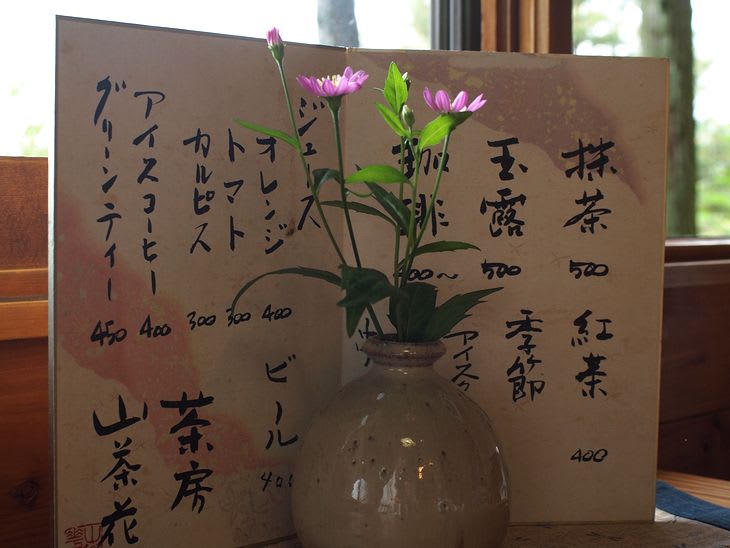 抹茶 500
玉露 500
珈琲 400〜
紅茶 400
季節
アイスク
ジュース
オレンジ 400
トマト 300
カルピス 300
アイスコーヒー 400
グリーンティー 450
ビール 400
茶房
山茶花